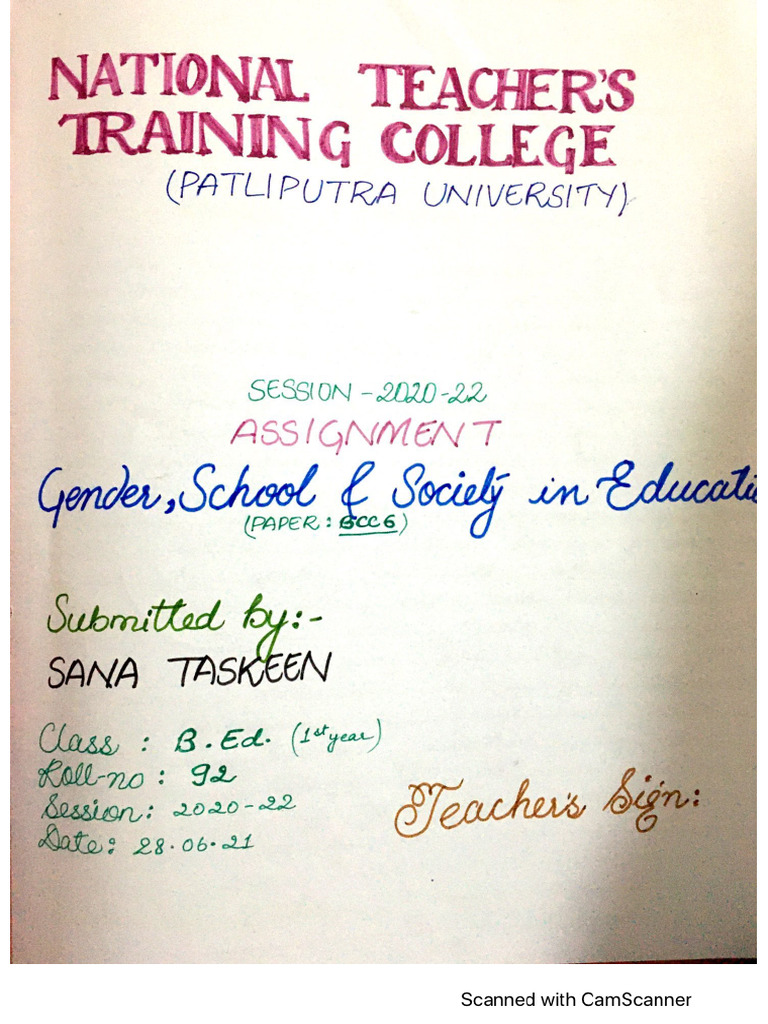 NATIONAL TEACHER'S
TRAINING COLLEGE
(PATLIPUTRA UNIVERSITY)
SESSION - 2020-22
ASSIGNMENT
Gender, School & Society in Educati
(PAPER: BCC6)
Submitted by:-
SANA TASKEEN
Class : B.Ed. (1st year)
Roll-no : 92
Session: 2020-22
Date: 28.06.21
Teacher's Sign:
Scanned with CamScanner